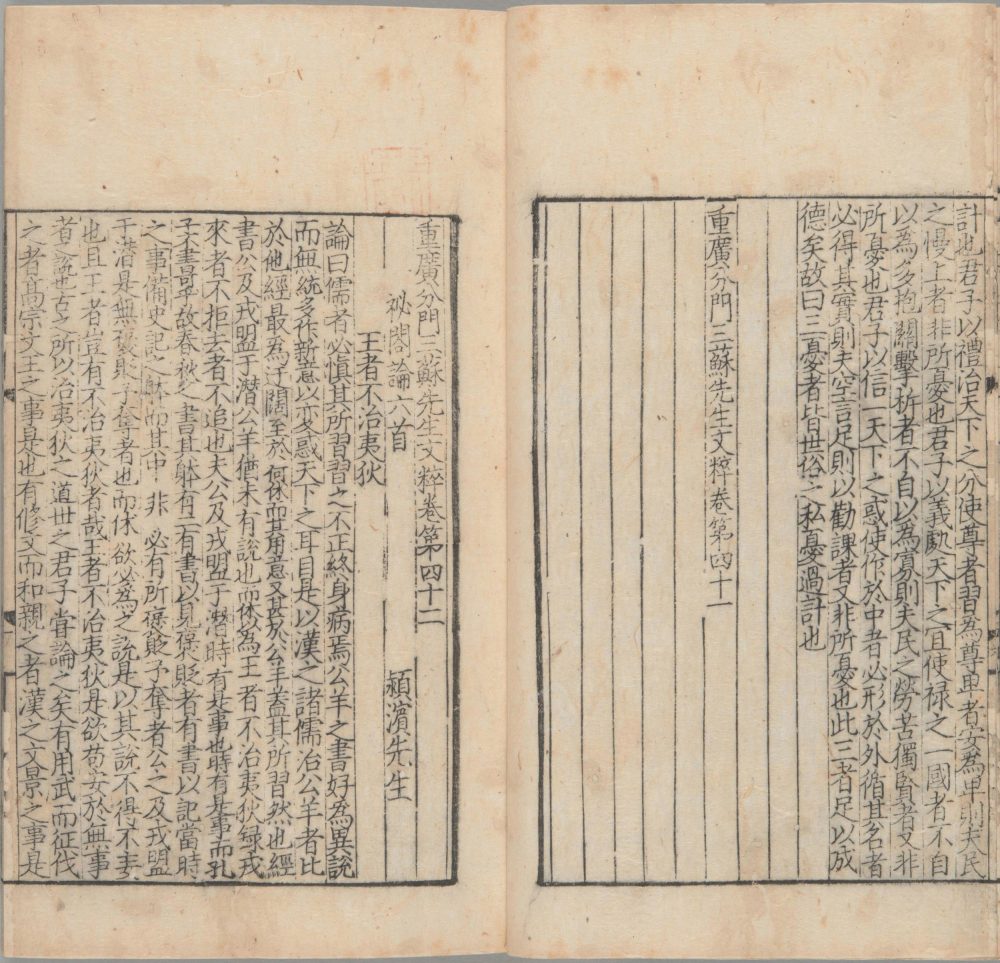 計也君子以禮治天下之分使尊者習為尊卑者安為卑則夫民
之慢上者非所憂也君子以義䖏天下之宜使祿之一國者不自
以為多抱關擊柝者不自以為寡則夫民之勞苦獨賢者又非
所憂也君子以信一天下之惑使作於中者必形於外循其名者
必得其實則夫空言足則以勸課者又非所憂也此三者足以成
德矣故曰三憂者皆世俗之私憂過計也
重廣分門三蘇先生文粹卷第四十一
重廣分門三蘇先生文粹卷第四十二
祕閣論六首 潁濱先生
王者不治夷狄
論曰儒者必慎其所習習之不正終身病焉公羊之書好為異說
而無統多作新意以变惑天下之耳目是以漢之諸儒治公羊者比
於他經最為迂闊至於何休而其用意又甚於公羊蓋其所習然也經
書公及戎盟于潜公羊猶未有說也而休為王者不治夷狄録戎
來者不拒去者不追也夫公及戎盟于潜時有是事也時有是事而孔
子不書可乎故春秋之書其躰有二有書以見褒貶者有書以記當時
之事備史記之躰而其中非必有所褒貶予奪者公之及戎盟
于潜是無褒貶予奪者也而休欲必為之說是以其說不得不妄
也且王者豈有不治夷狄者哉王者不治夷狄是欲苟安於無事
者之說也古之所以治夷狄之道世之君子嘗論之矣有用武而征伐
之者高宗文王之事是也有修文而和親之者漢之文景之事是